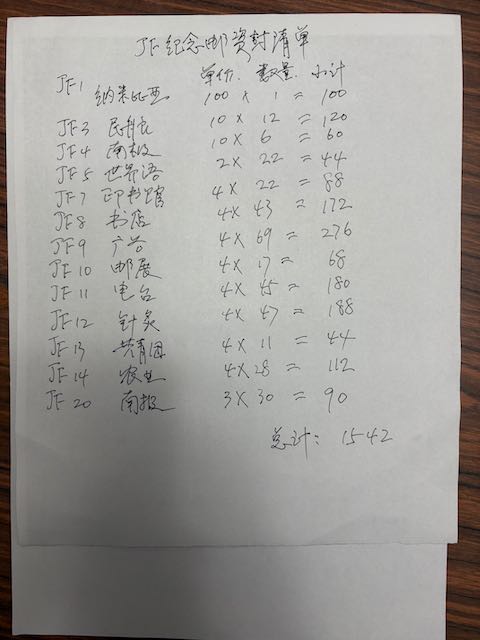 JF纪念邮资封清单
单价 数量 小计
JF1 纳米比亚 100 × 1 = 100
JF3 民间 10 × 12 = 120
JF4 南极 10 × 6 = 60
JF5 世界语 2 × 22 = 44
JF7 印书馆 4 × 22 = 88
JF8 书店 4 × 43 = 172
JF9 4 × 69 = 276
JF10 邮展 4 × 17 = 68
JF11 电台 4 × 45 = 180
JF12 针灸 4 × 47 = 188
JF13 共青团 4 × 11 = 44
JF14 农业 4 × 28 = 112
JF20 南极 3 × 30 = 90
总计: 1542